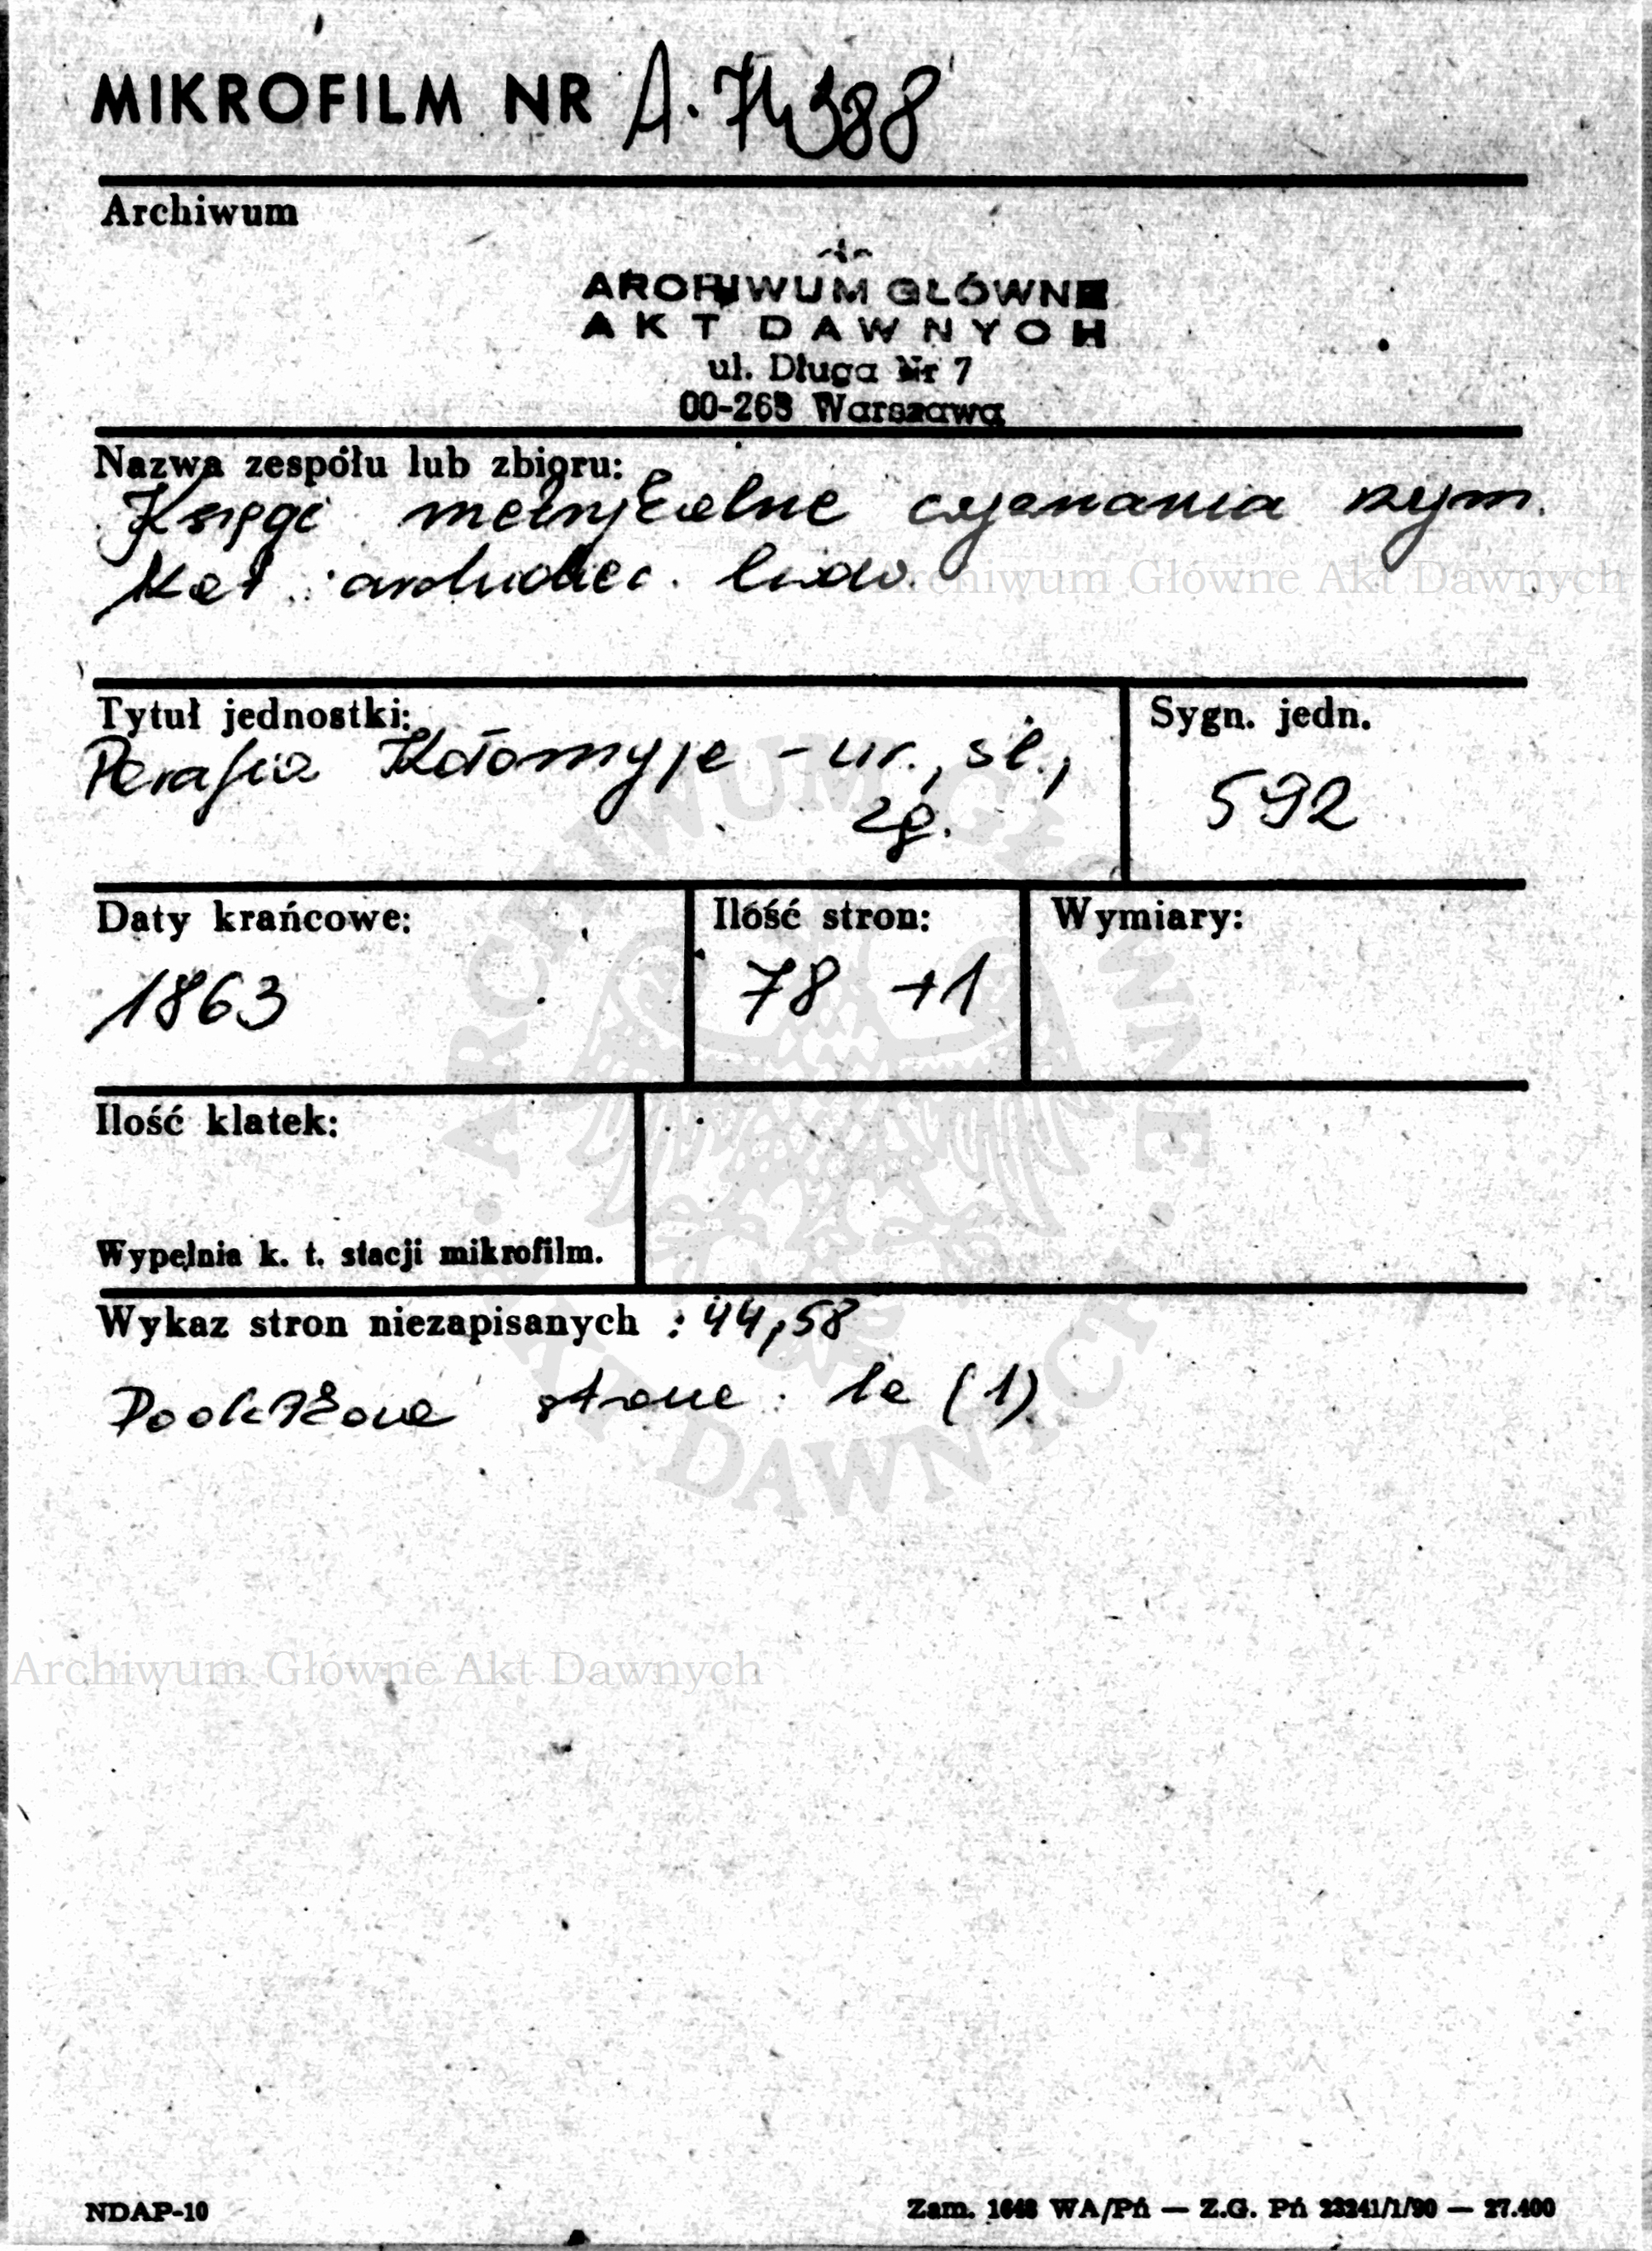 MIKROFILM NR A. 74388
Archiwum
ARCHIWUM GŁÓWNE
AKT DAWNYCH
ul. Długa Nr 7
00-263 Warszawa
Nazwa zespołu lub zbioru:
Księgi metrykalne wyznania rzym.
kat. archidiec. lwow.
Archiwum Główne Akt Dawnych
Tytuł jednostki:
Parafia Kołomyja - ur., śl.,
zg.
Sygn. jedn.
592
Daty krańcowe:
1863
Ilość stron:
78 +1
Wymiary:
Ilość klatek:
Wypełnia k. t. stacji mikrofilm.
Wykaz stron niezapisanych : 44, 58
strona: 1a (1)
ARCHIWUM GŁÓWNE AKT DAWNYCH
Archiwum Główne Akt Dawnych
NDAP-10
Zam. 1648 WA/Pń — Z.G. Pń 23241/1/90 — 27.400